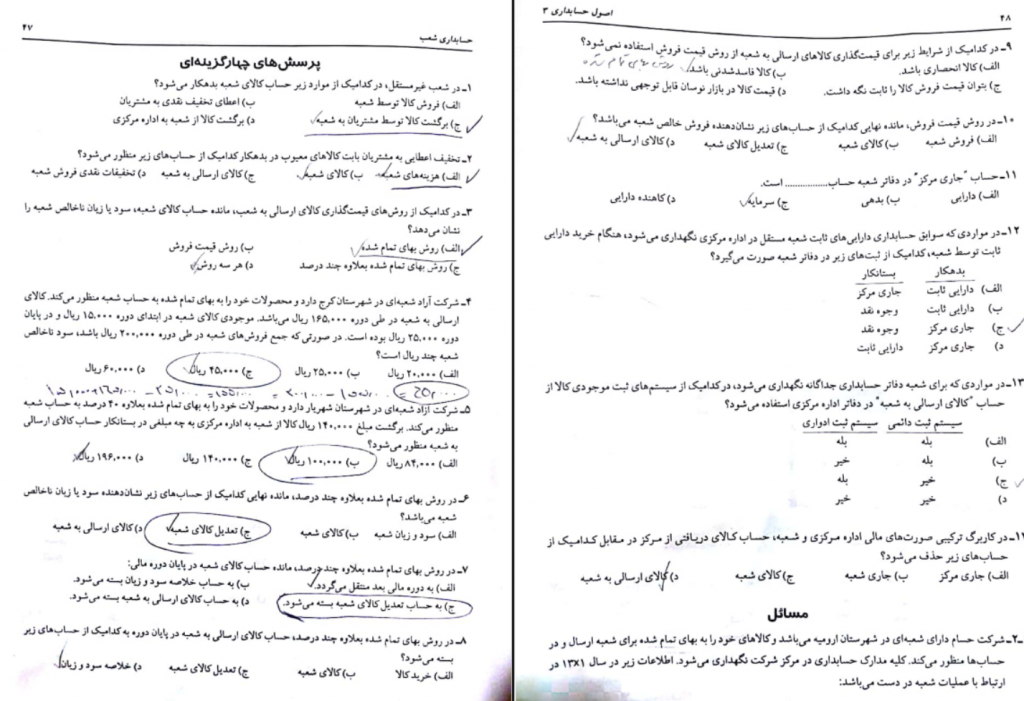 ۴۷
حسابداری شعب
پرسش‌های چهارگزینه‌ای
۱ـ در شعب غیرمستقل، در کدامیک از موارد زیر حساب کالای شعبه بدهکار می‌شود؟
الف) فروش کالا توسط شعبه ب) اعطای تخفیف نقدی به مشتریان
ج) برگشت کالا توسط مشتریان به شعبه د) برگشت کالا از شعبه به اداره مرکزی
۲ـ تخفیف اعطایی به مشتریان بابت کالاهای معیوب در بدهکار کدامیک از حساب‌های زیر منظور می‌شود؟
الف) هزینه‌های شعبه ب) کالای شعبه ج) کالای ارسالی به شعبه د) تخفیفات نقدی فروش شعبه
۳ـ در کدامیک از روش‌های قیمت‌گذاری کالای ارسالی به شعب، مانده حساب کالای شعبه، سود یا زیان ناخالص شعبه را
نشان می‌دهد؟
الف) روش بهای تمام شده ب) روش قیمت فروش
ج) روش بهای تمام شده بعلاوه چند درصد د) هر سه روش
۴ـ شرکت آراد شعبه‌ای در شهرستان کرج دارد و محصولات خود را به بهای تمام شده به حساب شعبه منظور می‌کند. کالای
ارسالی به شعبه در طی دوره ۱۶۵,۰۰۰ ریال می‌باشد. موجودی کالای شعبه در ابتدای دوره ۱۵,۰۰۰ ریال و در پایان
دوره ۲۵,۰۰۰ ریال بوده است. در صورتی که جمع فروش‌های شعبه در طی دوره ۲۰۰,۰۰۰ ریال باشد، سود ناخالص
شعبه چند ریال است؟
الف) ۲۰,۰۰۰ ریال ب) ۲۵,۰۰۰ ریال ج) ۴۵,۰۰۰ ریال د) ۶۰,۰۰۰ ریال
۵ـ شرکت آزاد شعبه‌ای در شهرستان شهریار دارد و محصولات خود را به بهای تمام شده بعلاوه ۴۰ درصد به حساب شعبه
منظور می‌کند. برگشت مبلغ ۱۴۰,۰۰۰ ریال کالا از شعبه به اداره مرکزی به چه مبلغی در بستانکار حساب کالای ارسالی
به شعبه منظور می‌شود؟
الف) ۸۴,۰۰۰ ریال ب) ۱۰۰,۰۰۰ ریال ج) ۱۴۰,۰۰۰ ریال د) ۱۹۶,۰۰۰ ریال
۶ـ در روش بهای تمام شده بعلاوه چند درصد، مانده نهایی کدامیک از حساب‌های زیر نشان‌دهنده سود یا زیان ناخالص
شعبه می‌باشد؟
الف) سود و زیان شعبه ب) کالای شعبه ج) تعدیل کالای شعبه د) کالای ارسالی به شعبه
۷ـ در روش بهای تمام شده بعلاوه چند درصد، مانده حساب کالای شعبه در پایان دوره مالی:
الف) به دوره مالی بعد منتقل می‌گردد. ب) به حساب خلاصه سود و زیان بسته می‌شود.
ج) به حساب تعدیل کالای شعبه بسته می‌شود. د) به حساب کالای ارسالی به شعبه بسته می‌شود.
۸ـ در روش بهای تمام شده بعلاوه چند درصد، حساب کالای ارسالی به شعبه در پایان دوره به کدامیک از حساب‌های زیر
بسته می‌شود؟
الف) خرید کالا ب) کالای شعبه ج) تعدیل کالای شعبه د) خلاصه سود و زیان
۴۸
اصول حسابداری ۳
۹ـ در کدامیک از شرایط زیر برای قیمت‌گذاری کالاهای ارسالی به شعبه از روش قیمت فروش استفاده نمی‌شود؟
الف) کالا انحصاری باشد. ب) کالا فاسدشدنی باشد. روش بهای تمام شده
ج) بتوان قیمت فروش کالا را ثابت نگه داشت. د) قیمت کالا در بازار نوسان قابل توجهی نداشته باشد.
۱۰ـ در روش قیمت فروش، مانده نهایی کدامیک از حساب‌های زیر نشان‌دهنده فروش خالص شعبه می‌باشد؟
الف) فروش شعبه ب) کالای شعبه ج) تعدیل کالای شعبه د) کالای ارسالی به شعبه
۱۱ـ حساب "جاری مرکز" در دفاتر شعبه حساب................ است.
الف) دارایی ب) بدهی ج) سرمایه د) کاهنده دارایی
۱۲ـ در مواردی که سوابق حسابداری دارایی‌های ثابت شعبه مستقل در اداره مرکزی نگهداری می‌شود، هنگام خرید دارایی
ثابت توسط شعبه، کدامیک از ثبت‌های زیر در دفاتر شعبه صورت می‌گیرد؟
بدهکار بستانکار
الف) دارایی ثابت جاری مرکز
ب) دارایی ثابت وجوه نقد
ج) جاری مرکز وجوه نقد
د) جاری مرکز دارایی ثابت
۱۳ـ در مواردی که برای شعبه دفاتر حسابداری جداگانه نگهداری می‌شود، در کدامیک از سیستم‌های ثبت موجودی کالا از
حساب "کالای ارسالی به شعبه" در دفاتر اداره مرکزی استفاده می‌شود؟
سیستم ثبت دائمی سیستم ثبت ادواری
الف) بله بله
ب) بله خیر
ج) خیر بله
د) خیر خیر
ـ در کاربرگ ترکیبی صورت‌های مالی اداره مرکزی و شعبه، حساب کالای دریافتی از مرکز در مقابل کدامیک از
حساب‌های زیر حذف می‌شود؟
الف) جاری مرکز ب) جاری شعبه ج) کالای شعبه د) کالای ارسالی به شعبه
مسائل
۲ـ شرکت حسام دارای شعبه‌ای در شهرستان ارومیه می‌باشد و کالاهای خود را به بهای تمام شده برای شعبه ارسال و در
حساب‌ها منظور می‌کند. کلیه مدارک حسابداری در مرکز شرکت نگهداری می‌شود. اطلاعات زیر در سال ۱۳X۱ در
ارتباط با عملیات شعبه در دست می‌باشد: